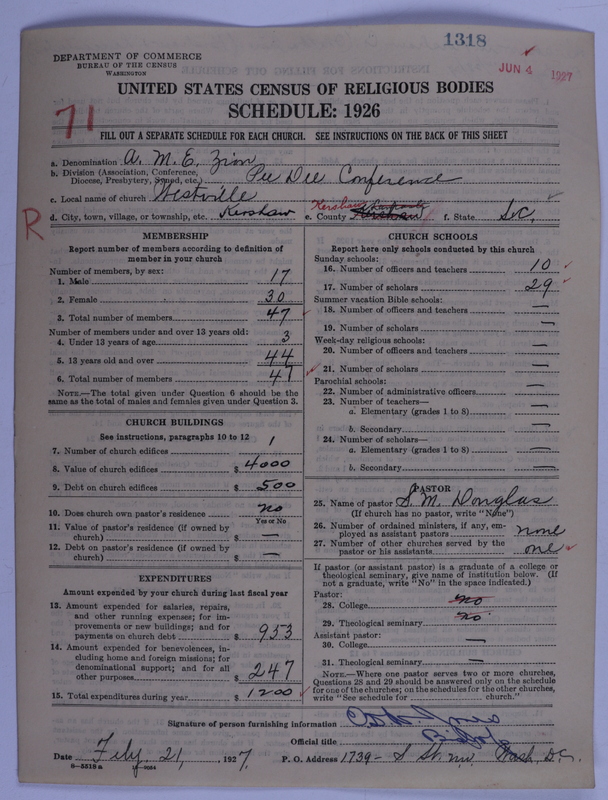 1318
JUN 4 1927
DEPARTMENT OF COMMERCE
BUREAU OF THE CENSUS
WASHINGTON
UNITED STATES CENSUS OF RELIGIOUS BODIES
SCHEDULE: 1926
71
FILL OUT A SEPARATE SCHEDULE FOR EACH CHURCH. SEE INSTRUCTIONS ON THE BACK OF THIS SHEET
a. Denomination A. M. E. Zion
b. Division (Association, Conference, Diocese, Presbytery, Synod, etc.) Pee Dee Conference
c. Local name of church Westville
R
d. City, town, village, or township, etc. Kershaw e. County Kershaw f. State S.C.
MEMBERSHIP
Report number of members according to definition of
member in your church
Number of members, by sex:
1. Male 17
2. Female 30
3. Total number of members 47
Number of members under and over 13 years old:
4. Under 13 years of age 3
5. 13 years old and over 44
6. Total number of members 47
NOTE.—The total given under Question 6 should be
same as the total of males and females given under Question 3.
CHURCH BUILDINGS
See instructions, paragraphs 10 to 12
7. Number of church edifices 1
8. Value of church edifices $ 4000
9. Debt on church edifices $ 500
10. Does church own pastor's residence no
Yes or No
11. Value of pastor's residence (if owned by
church) $ —
12. Debt on pastor's residence (if owned by
church) $ —
EXPENDITURES
Amount expended by your church during last fiscal year
13. Amount expended for salaries, repairs,
and other running expenses; for im-
provements or new buildings; and for
payments on church debt $ 953
14. Amount expended for benevolences, in-
cluding home and foreign missions; for
denominational support; and for all
other purposes $ 247
15. Total expenditures during year $ 1200
CHURCH SCHOOLS
Report here only schools conducted by this church
Sunday schools:
16. Number of officers and teachers 10
17. Number of scholars 29
Summer vacation Bible schools:
18. Number of officers and teachers —
19. Number of scholars —
Week-day religious schools:
20. Number of officers and teachers —
21. Number of scholars —
Parochial schools:
22. Number of administrative officers —
23. Number of teachers—
a. Elementary (grades 1 to 8) —
b. Secondary —
24. Number of scholars—
a. Elementary (grades 1 to 8) —
b. Secondary —
PASTOR
25. Name of pastor S. M. Donglas
(If church has no pastor, write "None")
26. Number of ordained ministers, if any, em-
ployed as assistant pastors none
27. Number of other churches served by the
pastor or his assistants one
If pastor (or assistant pastor) is a graduate of a college or
theological seminary, give name of institution below. (If
not a graduate, write "No" in the space indicated.)
Pastor:
28. College no
29. Theological seminary no
Assistant pastor:
30. College —
31. Theological seminary —
NOTE.—Where one pastor serves two or more churches,
Questions 28 and 29 should be answered only on the schedule
for one of the churches; on the schedules for the other churches,
write "See schedule for church."
Signature of person furnishing information
Official title Bishop
Date Feby. 21, 1927. P. O. Address 1739- S St. nw. Wash, D.C.
8-5518 a